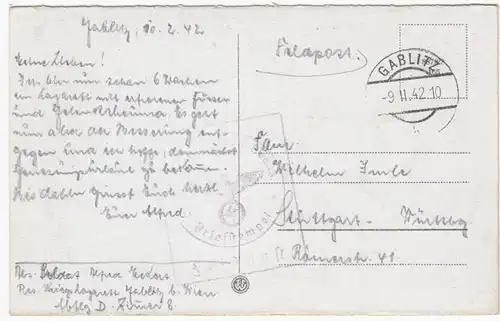 Gablitz, 10.2.42
Meine Lieben!
Ich bin nun schon 6 Wochen
im Lazarett mit erfrorenen Füssen
und Gelenkrheuma. Es geht
nun aber der Besserung ent-
gegen und ich hoffe, demnächst
Genesungsurlaub zu bekommen.
Bis dahin grüsst Euch herzl.
Euer Alfred.
Abs. Soldat Alfred
Res. Kriegslazarett Gablitz b. Wien
Abtlg D. Zimmer 6
Feldpost.
GABLITZ
-9.II.42.10
Fam.
Wilhelm
Stuttgart- Württbg
Römerstr. 41
Briefstempel